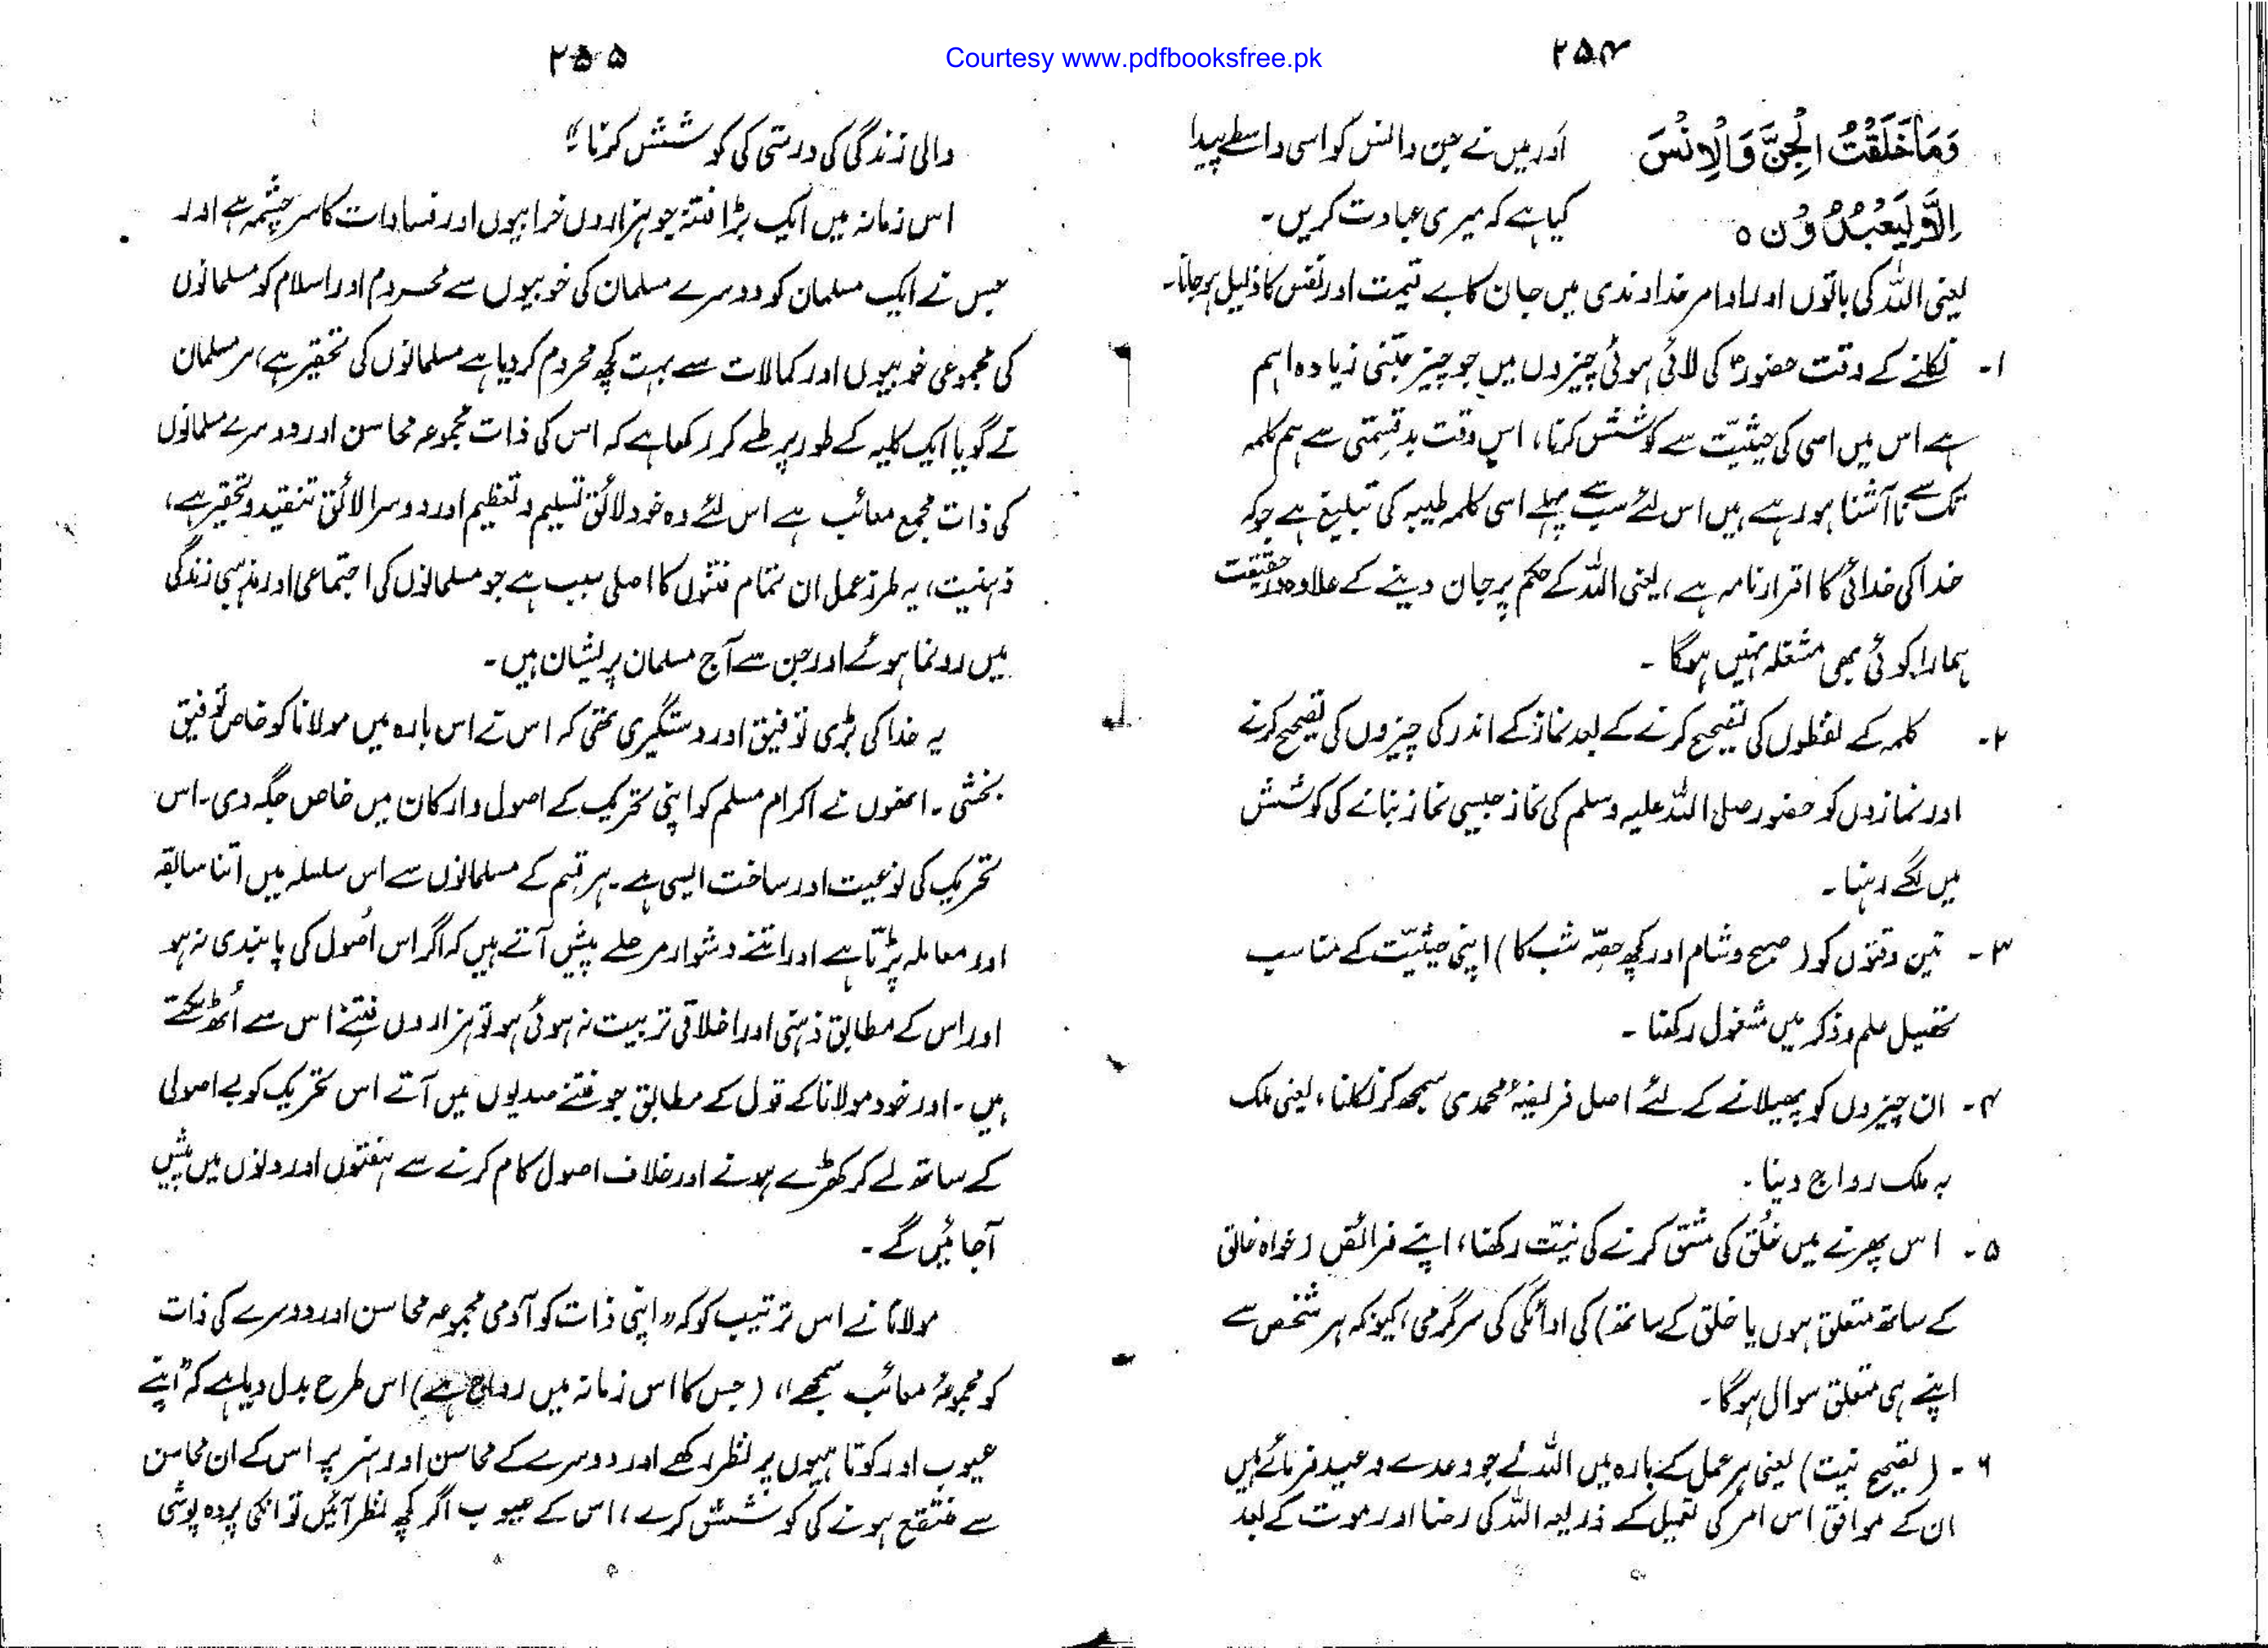 Courtesy www.pdfbooksfree.pk
۲۵۴
وَمَا خَلَقْتُ الْجِنَّ وَالْاِنْسَ اور میں نے جن و انس کو اسی واسطے پیدا
اِلَّا لِيَعْبُدُوْنِ ہ کیا ہے کہ میری عبادت کریں۔
یعنی اللہ کی باتوں اور اوامر خداوندی میں جان کا بے قیمت اور نفس کا ذلیل ہو جانا۔
۱۔ نکلنے کے وقت حضورؐ کی لائی ہوئی چیزوں میں جو چیز جتنی زیادہ اہم
ہے اس میں اسی کی حیثیّت سے کوشش کرنا، اس وقت بدقسمتی سے ہم کلمہ
تک سے نا آشنا ہو رہے ہیں اس لئے سب سے پہلے اسی کلمہ طیبہ کی تبلیغ ہے جو کہ
خدا کی خدائی کا اقرار نامہ ہے، یعنی اللہ کے حکم پر جان دینے کے علاوہ درحقیقت
ہمارا کوئی بھی مشغلہ نہیں ہوگا۔
۲۔ کلمہ کے لفظوں کی تصحیح کرنے کے بعد نماز کے اندر کی چیزوں کی تصحیح کرنے
اور نمازوں کو حضور صلی اللہ علیہ وسلم کی نماز جیسی نماز بنانے کی کوشش
میں لگے رہنا۔
۳۔ تین وقتوں کو (صبح و شام اور کچھ حصّہ شب کا) اپنی حیثیّت کے مناسب
تحصیل علم و ذکر میں مشغول رکھنا۔
۴۔ ان چیزوں کو پھیلانے کے لئے اصل فریضۂ محمدی سمجھ کر نکلنا، یعنی ملک
بہ ملک رواج دینا۔
۵۔ اس پھرنے میں خُلق کی مشق کرنے کی نیّت رکھنا، اپنے فرائض (خواہ خالق
کے ساتھ متعلق ہوں یا خلق کے ساتھ) کی ادائگی کی سرگرمی، کیونکہ ہر شخص سے
اپنے ہی متعلق سوال ہوگا۔
۶۔ (تصحیح نیت) یعنی ہر عمل کے بارہ میں اللہ نے جو وعدے وعید فرمائے ہیں
ان کے موافق اس امر کی تعمیل کے ذریعہ اللہ کی رضا اور موت کے بعد
۲۵۵
والی زندگی کی درستی کی کوشش کرنا“
اس زمانہ میں ایک بڑا فتنہ جو ہزاروں خرابیوں اور فسادات کا سرچشمہ ہے اور
جس نے ایک مسلمان کو دوسرے مسلمان کی خوبیوں سے محروم اور اسلام کو مسلمانوں
کی مجموعی خوبیوں اور کمالات سے بہت کچھ محروم کر دیا ہے مسلمانوں کی تحقیر ہے، ہر مسلمان
نے گویا ایک کلیہ کے طور پر طے کر رکھا ہے کہ اس کی ذات مجموعہ محاسن اور دوسرے مسلمانوں
کی ذات مجمع معائب ہے اس لئے وہ خود لائق تسلیم و تعظیم اور دوسرا لائق تنقید و تحقیر ہے،
ذہنیت، یہ طرز عمل ان تمام فتنوں کا اصلی سبب ہے جو مسلمانوں کی اجتماعی اور مذہبی زندگی
میں رونما ہوئے اور جن سے آج مسلمان پریشان ہیں۔
یہ خدا کی بڑی توفیق اور دستگیری تھی کہ اس نے اس بارہ میں مولانا کو خاص توفیق
بخشی۔ انھوں نے اکرام مسلم کو اپنی تحریک کے اصول و ارکان میں خاص جگہ دی۔ اس
تحریک کی نوعیت اور ساخت ایسی ہے۔ ہر قسم کے مسلمانوں سے اس سلسلہ میں اتنا سابقہ
اور معاملہ پڑتا ہے اور اتنے دشوار مرحلے پیش آتے ہیں کہ اگر اس اُصول کی پابندی نہ ہو
اور اس کے مطابق ذہنی اور اخلاقی تربیت نہ ہوئی ہو تو ہزاروں فتنے اس سے اُٹھ سکتے
ہیں۔ اور خود مولانا کے قول کے مطابق جو فتنے صدیوں میں آتے اس تحریک کو بے اصولی
کے ساتھ لے کر کھڑے ہونے اور خلاف اصول کام کرنے سے ہفتوں اور دنوں میں پیش
آجائیں گے۔
مولانا نے اس ترتیب کو کہ ”اپنی ذات کو آدمی مجموعہ محاسن اور دوسرے کی ذات
کو مجموعۂ معائب سمجھے“ (جس کا اس زمانہ میں رواج ہے) اس طرح بدل دیا ہے کہ ”اپنے
عیوب اور کوتاہیوں پر نظر رکھے اور دوسرے کے محاسن اور ہنر پر اس کے ان محاسن
سے منتفع ہونے کی کوشش کرے، اس کے عیوب اگر کچھ نظر آئیں تو انکی پردہ پوشی